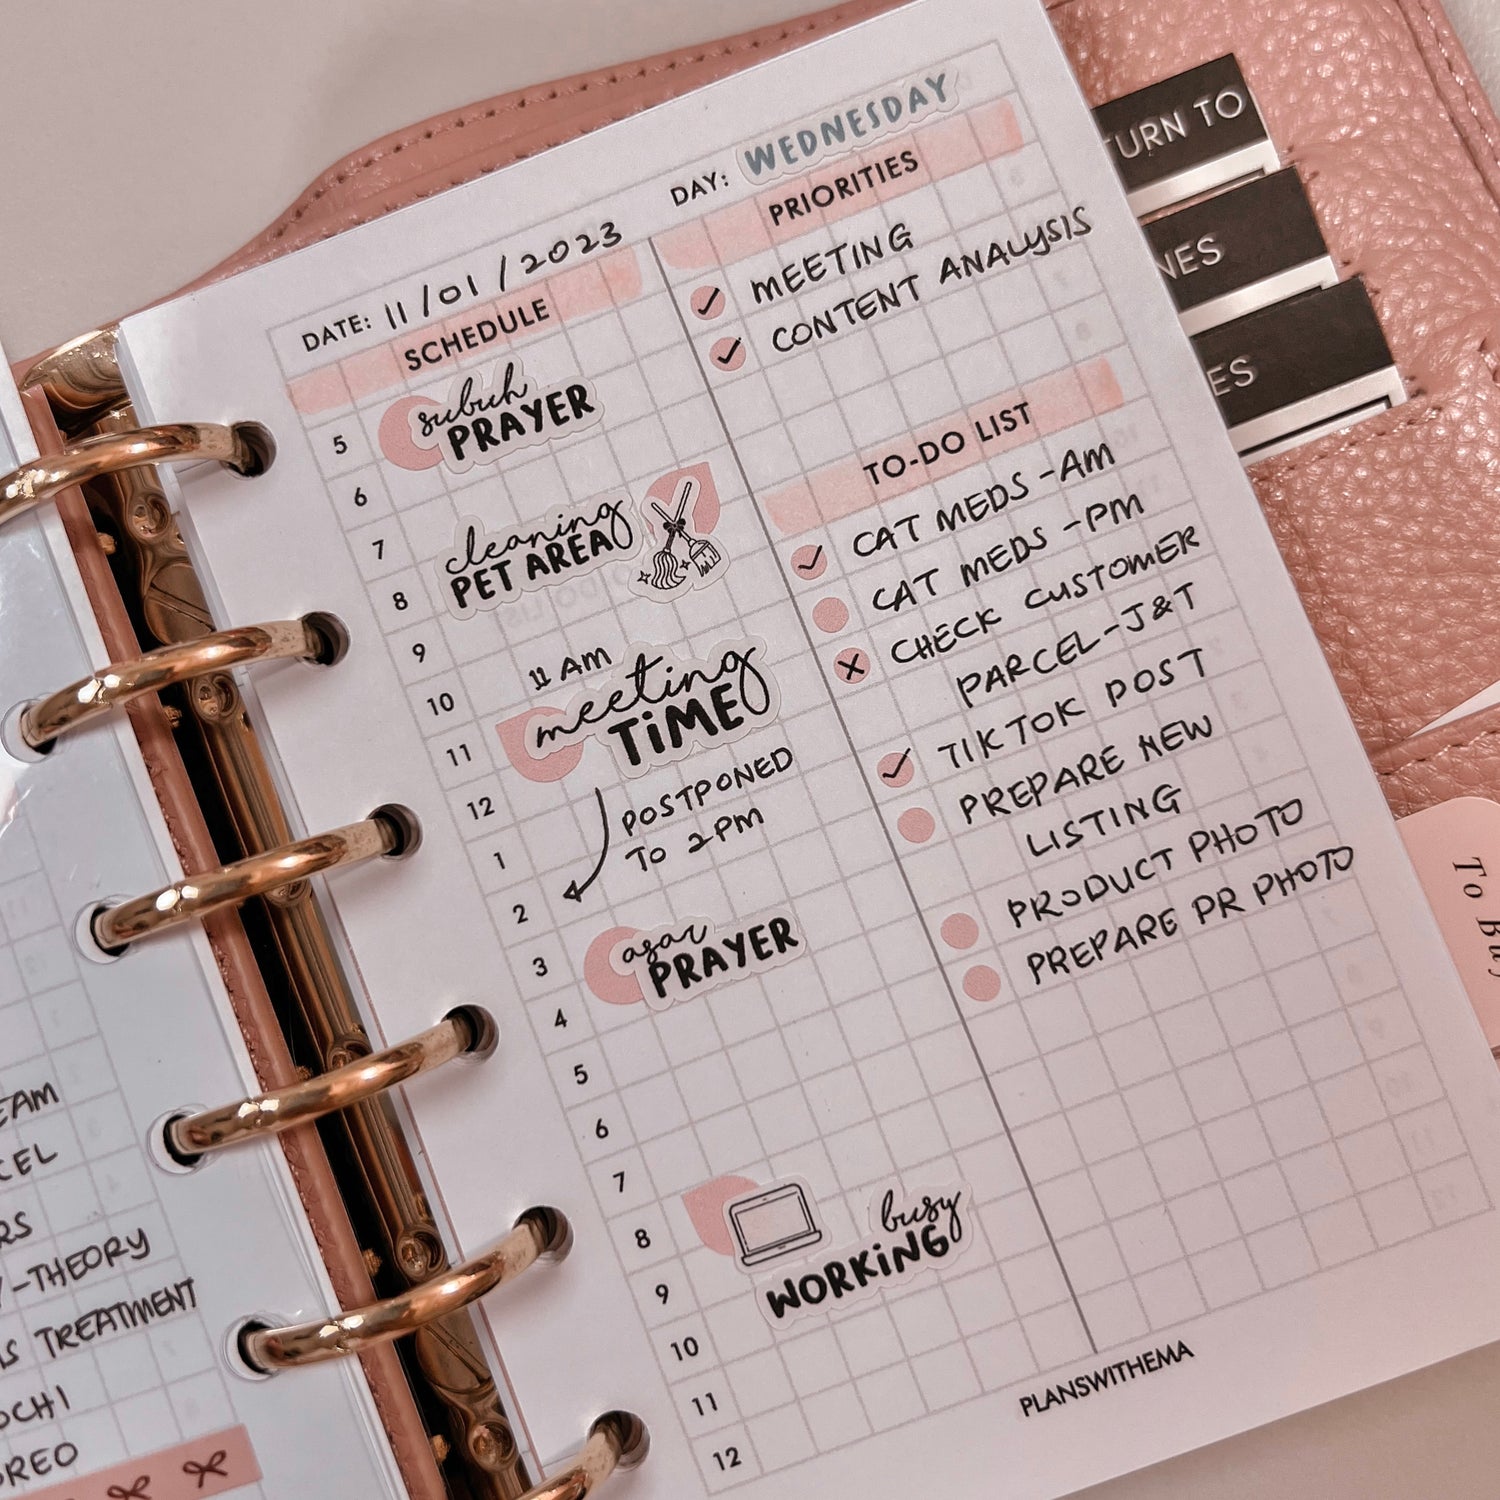 DATE: 11/01/2023
DAY: WEDNESDAY
SCHEDULE
5
subuh
PRAYER
6
7
cleaning
PET AREA
8
9
10
11 AM
meeting
TIME
11
12
POSTPONED
TO 2PM
1
2
3
asar
PRAYER
4
5
6
7
8
busy
WORKING
9
10
11
12
PRIORITIES
MEETING
CONTENT ANALYSIS
TO-DO LIST
CAT MEDS -AM
CAT MEDS -PM
CHECK CUSTOMER
PARCEL-J&T
TIKTOK POST
PREPARE NEW
LISTING
PRODUCT PHOTO
PREPARE PR PHOTO
PLANSWITHEMA
TO
To
-THEORY
TREATMENT